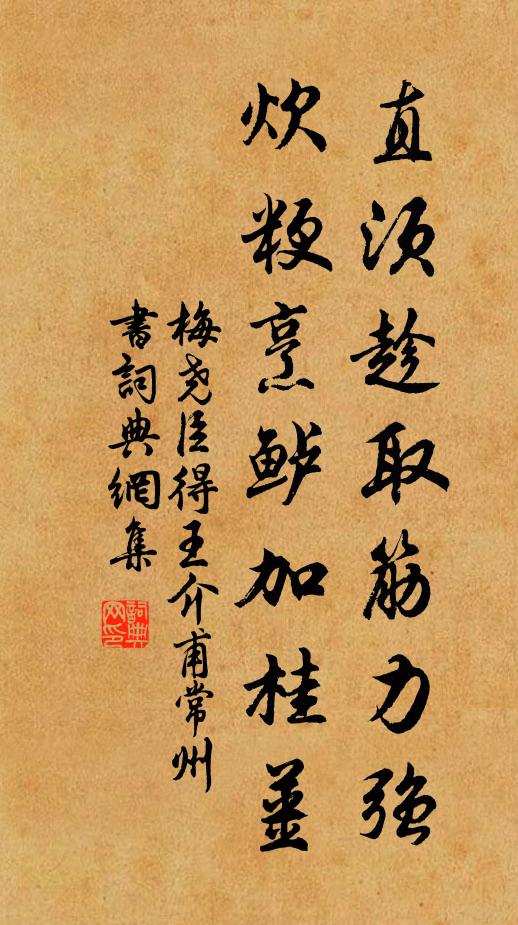 直须趁取筋力强
炊粳烹鲈加桂薑
梅尧臣得王介甫常州
書詞典網集
詞典
网印